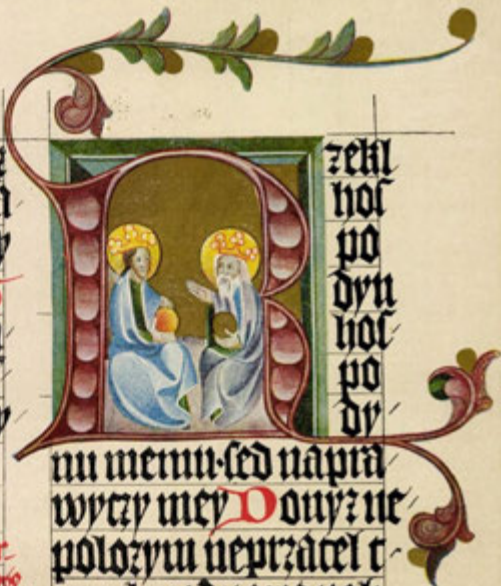 Rzekl
hoſ
po
dyn
hoſ
po
dy
nu memu·ſed napra
wyczy mey Donyz ne
polozym neprzatel t